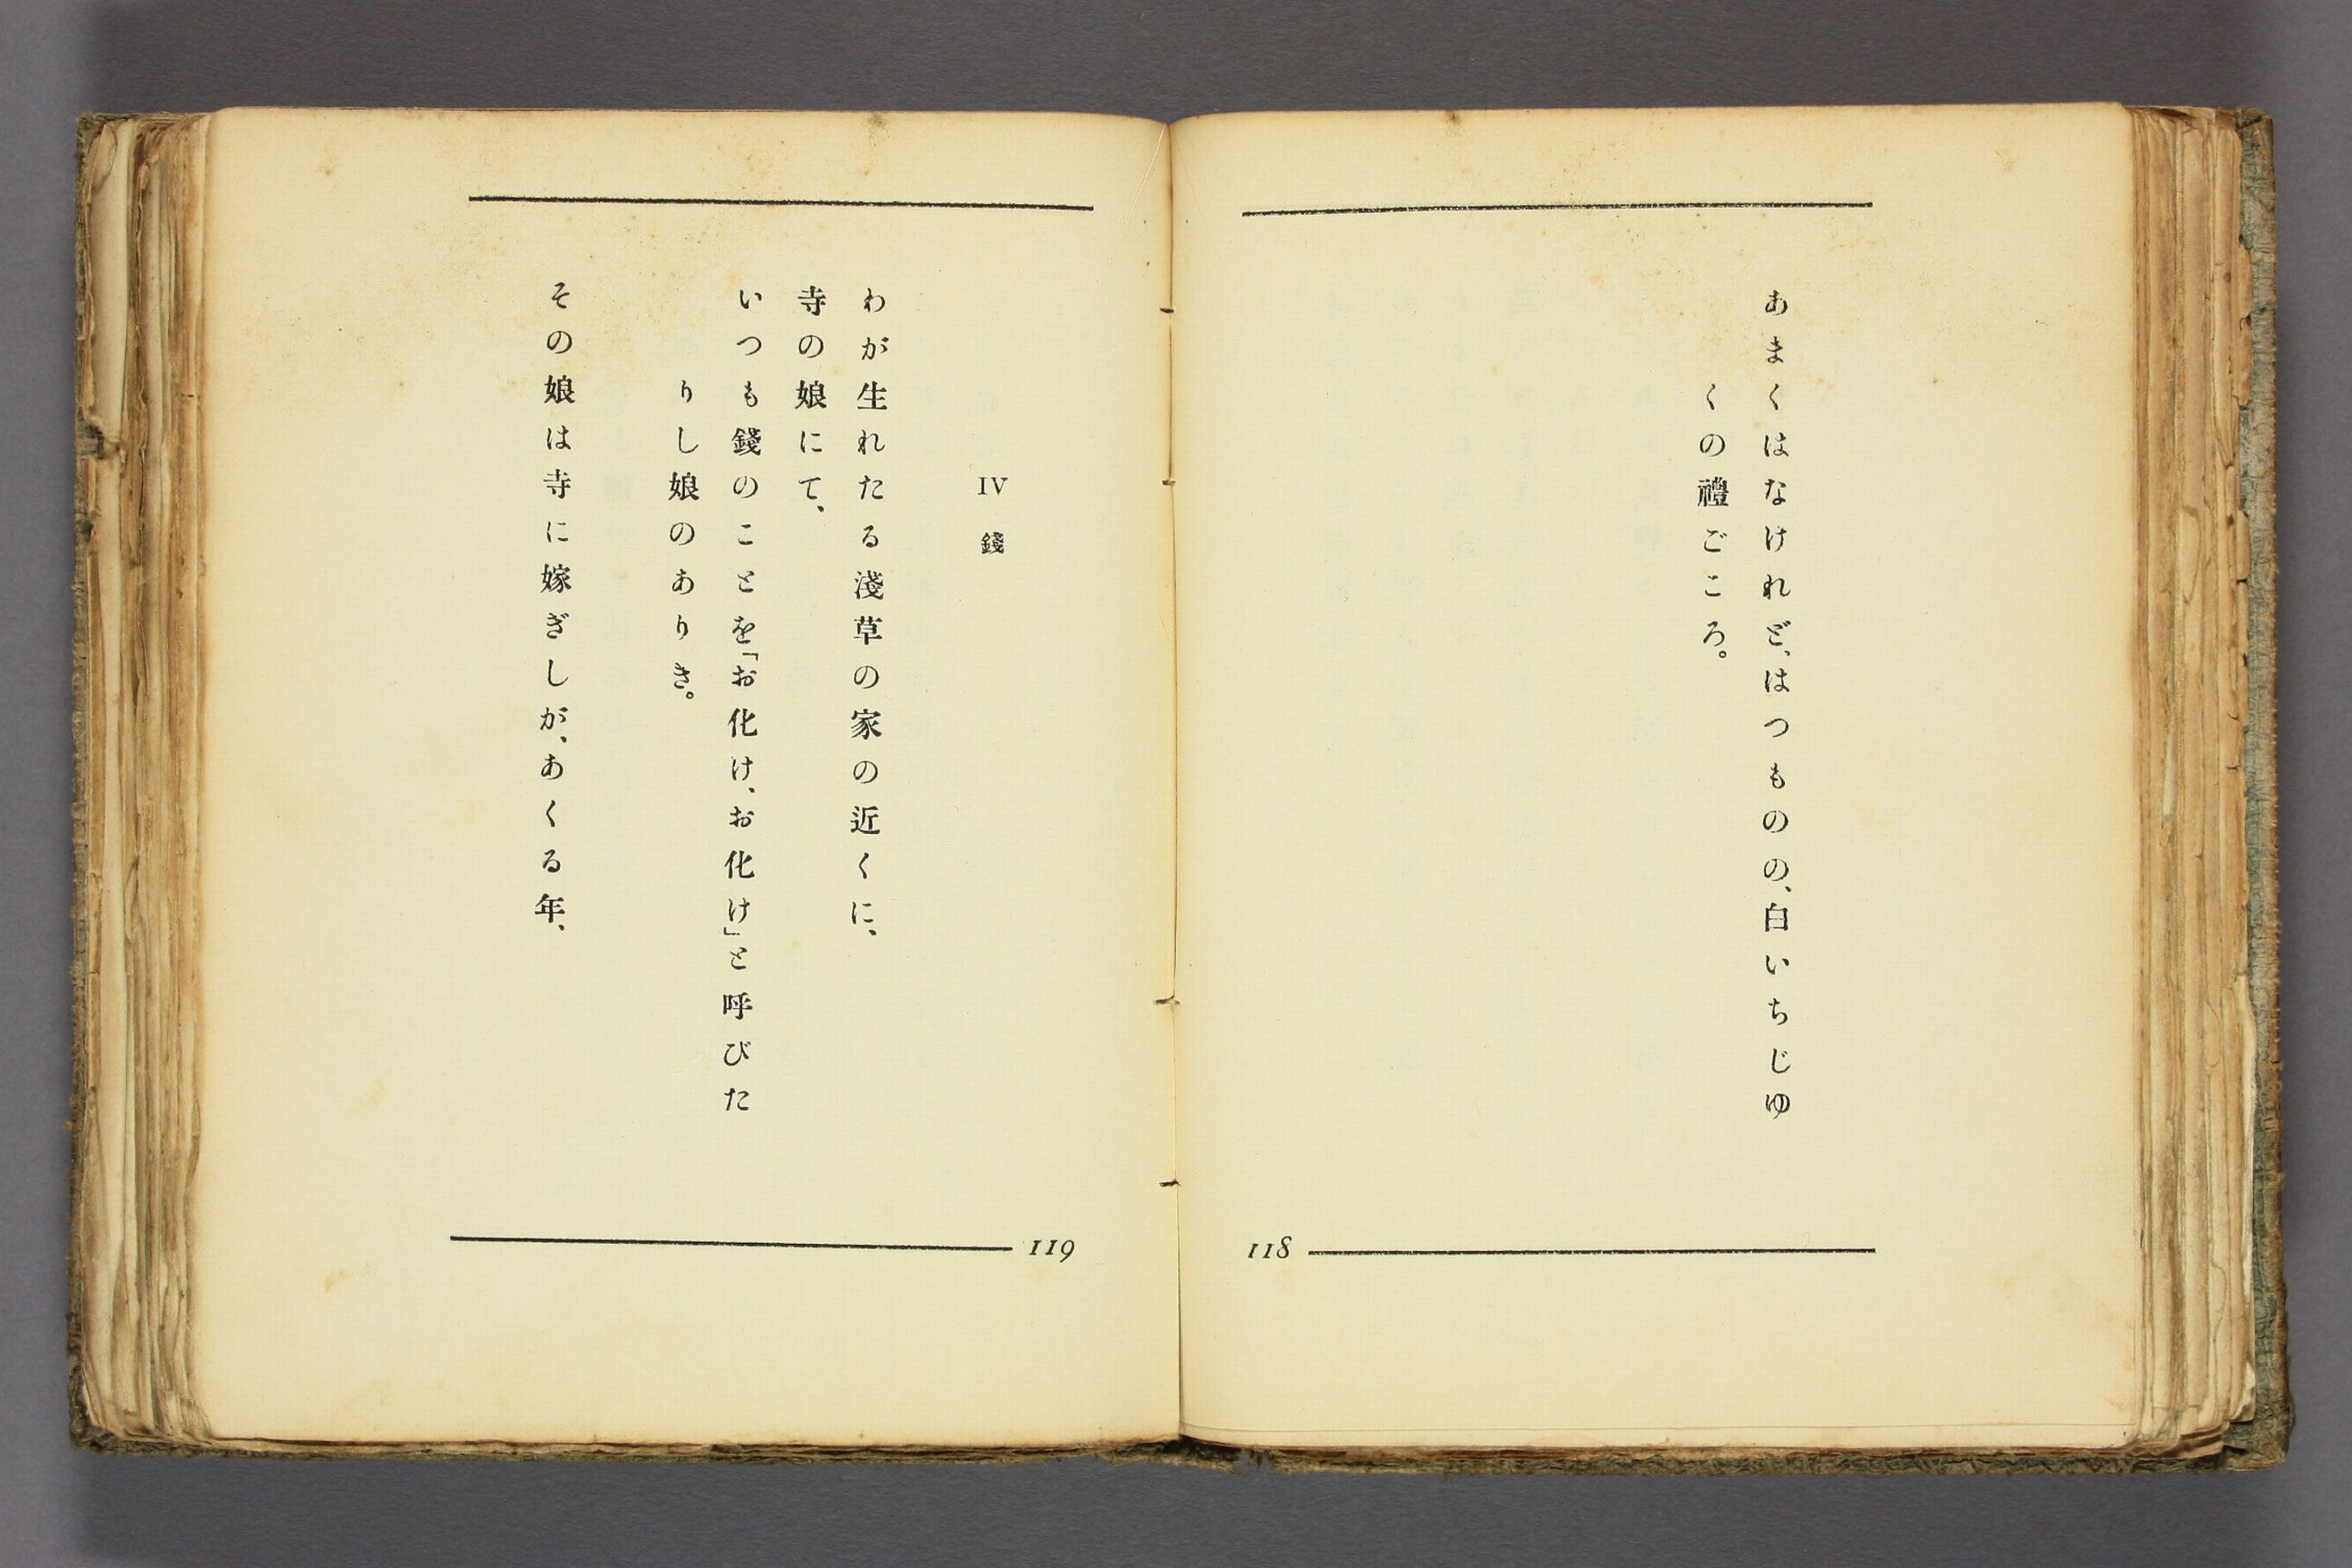 あまくはなけれど、はつものの、白いちじゆ
くの禮ごころ。
118
IV 錢
わが生れたる淺草の家の近くに、
寺の娘にて、
いつも錢のことを「お化け、お化け」と呼びた
りし娘のありき。
その娘は寺に嫁ぎしが、あくる年、
119